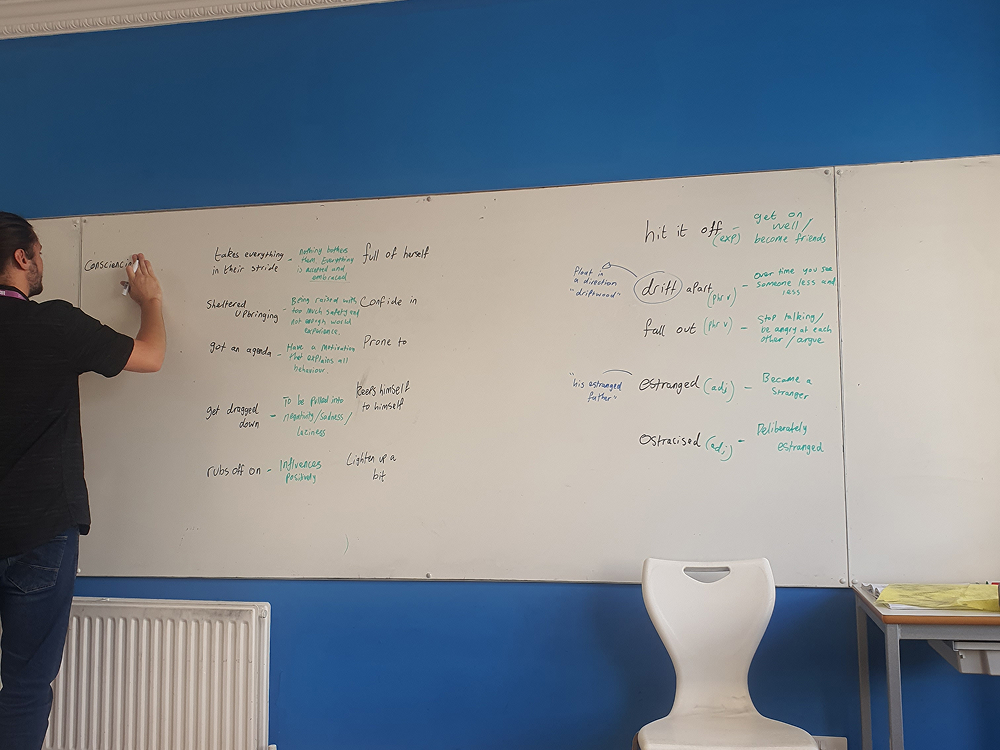 Consciencin
takes everything
in their stride
- nothing bothers
them. Everything
is accepted and
embraced
Sheltered
upbringing
- Being raised with
too much safety and
not enough world
experience.
got an agenda
- Have a motivation
that explains all
behaviour.
get dragged
down
- To be pulled into
negativity/sadness/
laziness
rubs off on
- Influences
positively
full of herself
Confide in
Prone to
keeps himself
to himself
Lighten up a
bit
hit it off
(exp)
- get on
well/
become friends
Float in
a direction
"driftwood"
drift apart
(phr v)
- Over time you see
someone less and
less
fall out (phr v)
- Stop talking/
be angry at each
other / argue
"his estranged
father"
estranged (adj)
- Become a
Stranger
Ostracised (adj)
- Deliberately
estranged